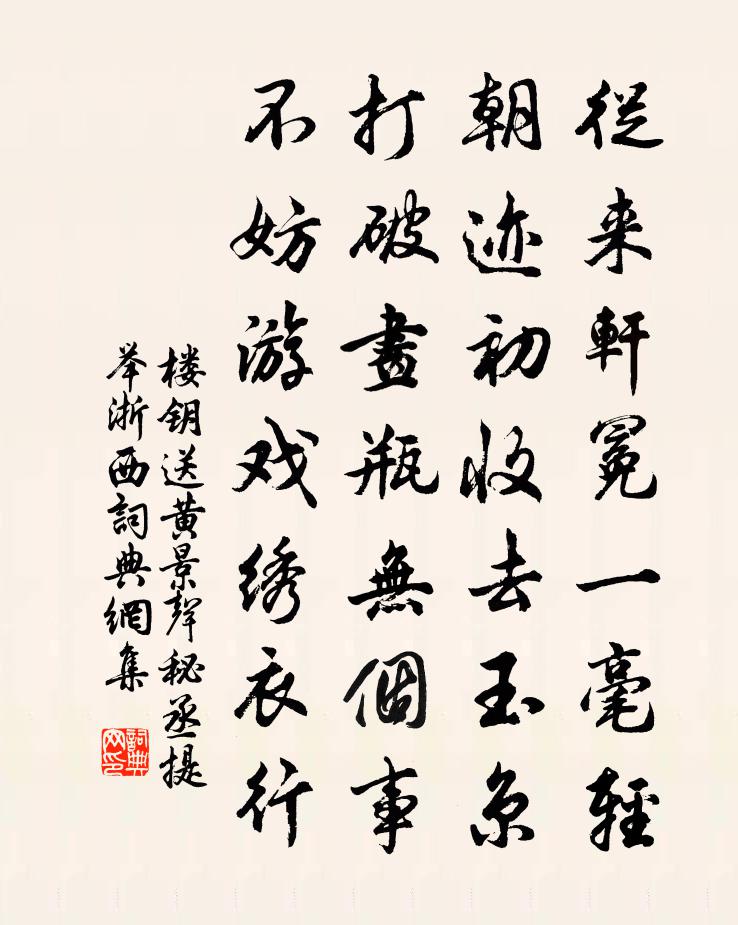 從来軒冕一毫輕
朝迹初收去玉京
打破畫瓶無個事
不妨游戏绣衣行
楼钥送黄景聲秘丞提
举浙西詞典網集
詞典网印